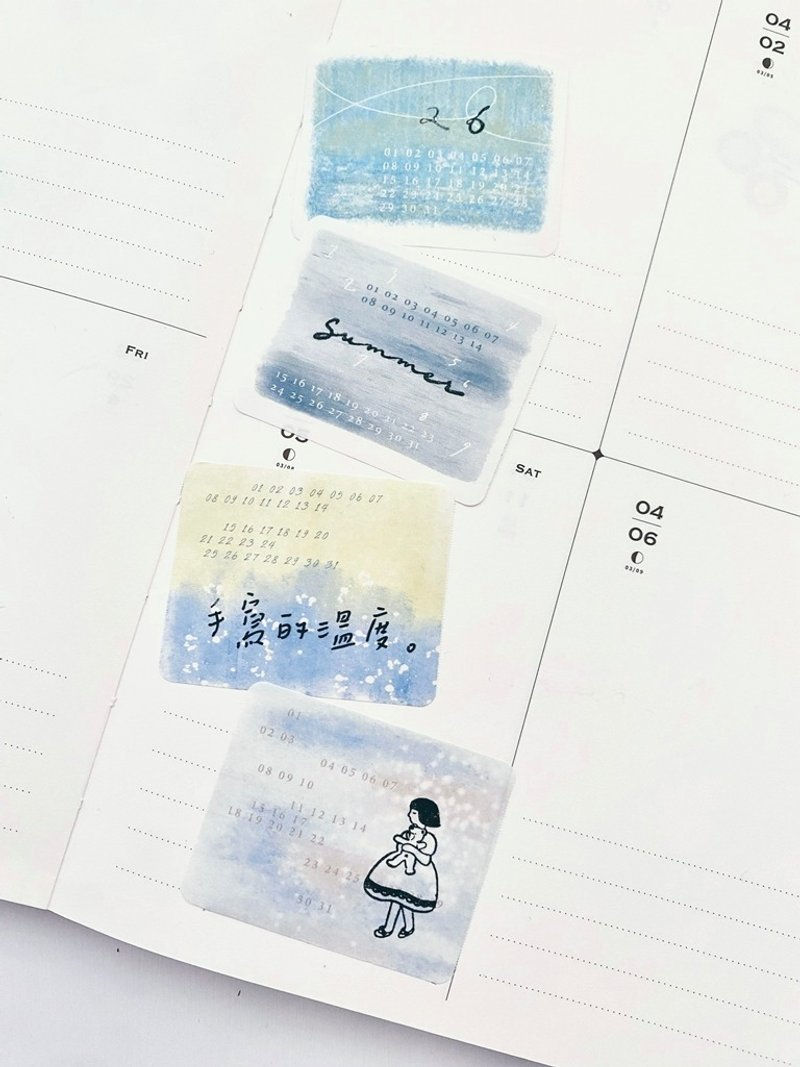 04
02
26
01 02 03 04 05 06 07
08 09 10 11 12 13 14
15 16 17 18 19 20 21
22 23 24 25 26 27 28
29 30 31
1
2
3
4
01 02 03 04 05 06 07
08 09 10 11 12 13 14
Summer
5
6
7
8
9
15 16 17 18 19 20 21 22 23
24 25 26 27 28 29 30 31
FRI
SAT
04
06
03/09
03/08
01 02 03 04 05 06 07
08 09 10 11 12 13 14
15 16 17 18 19 20
21 22 23 24
25 26 27 28 29 30 31
手寫的溫度。
01
02 03
04 05 06 07
08 09 10
11 12 13 14
15 16 17
18 19 20 21 22
23 24 25
30 31